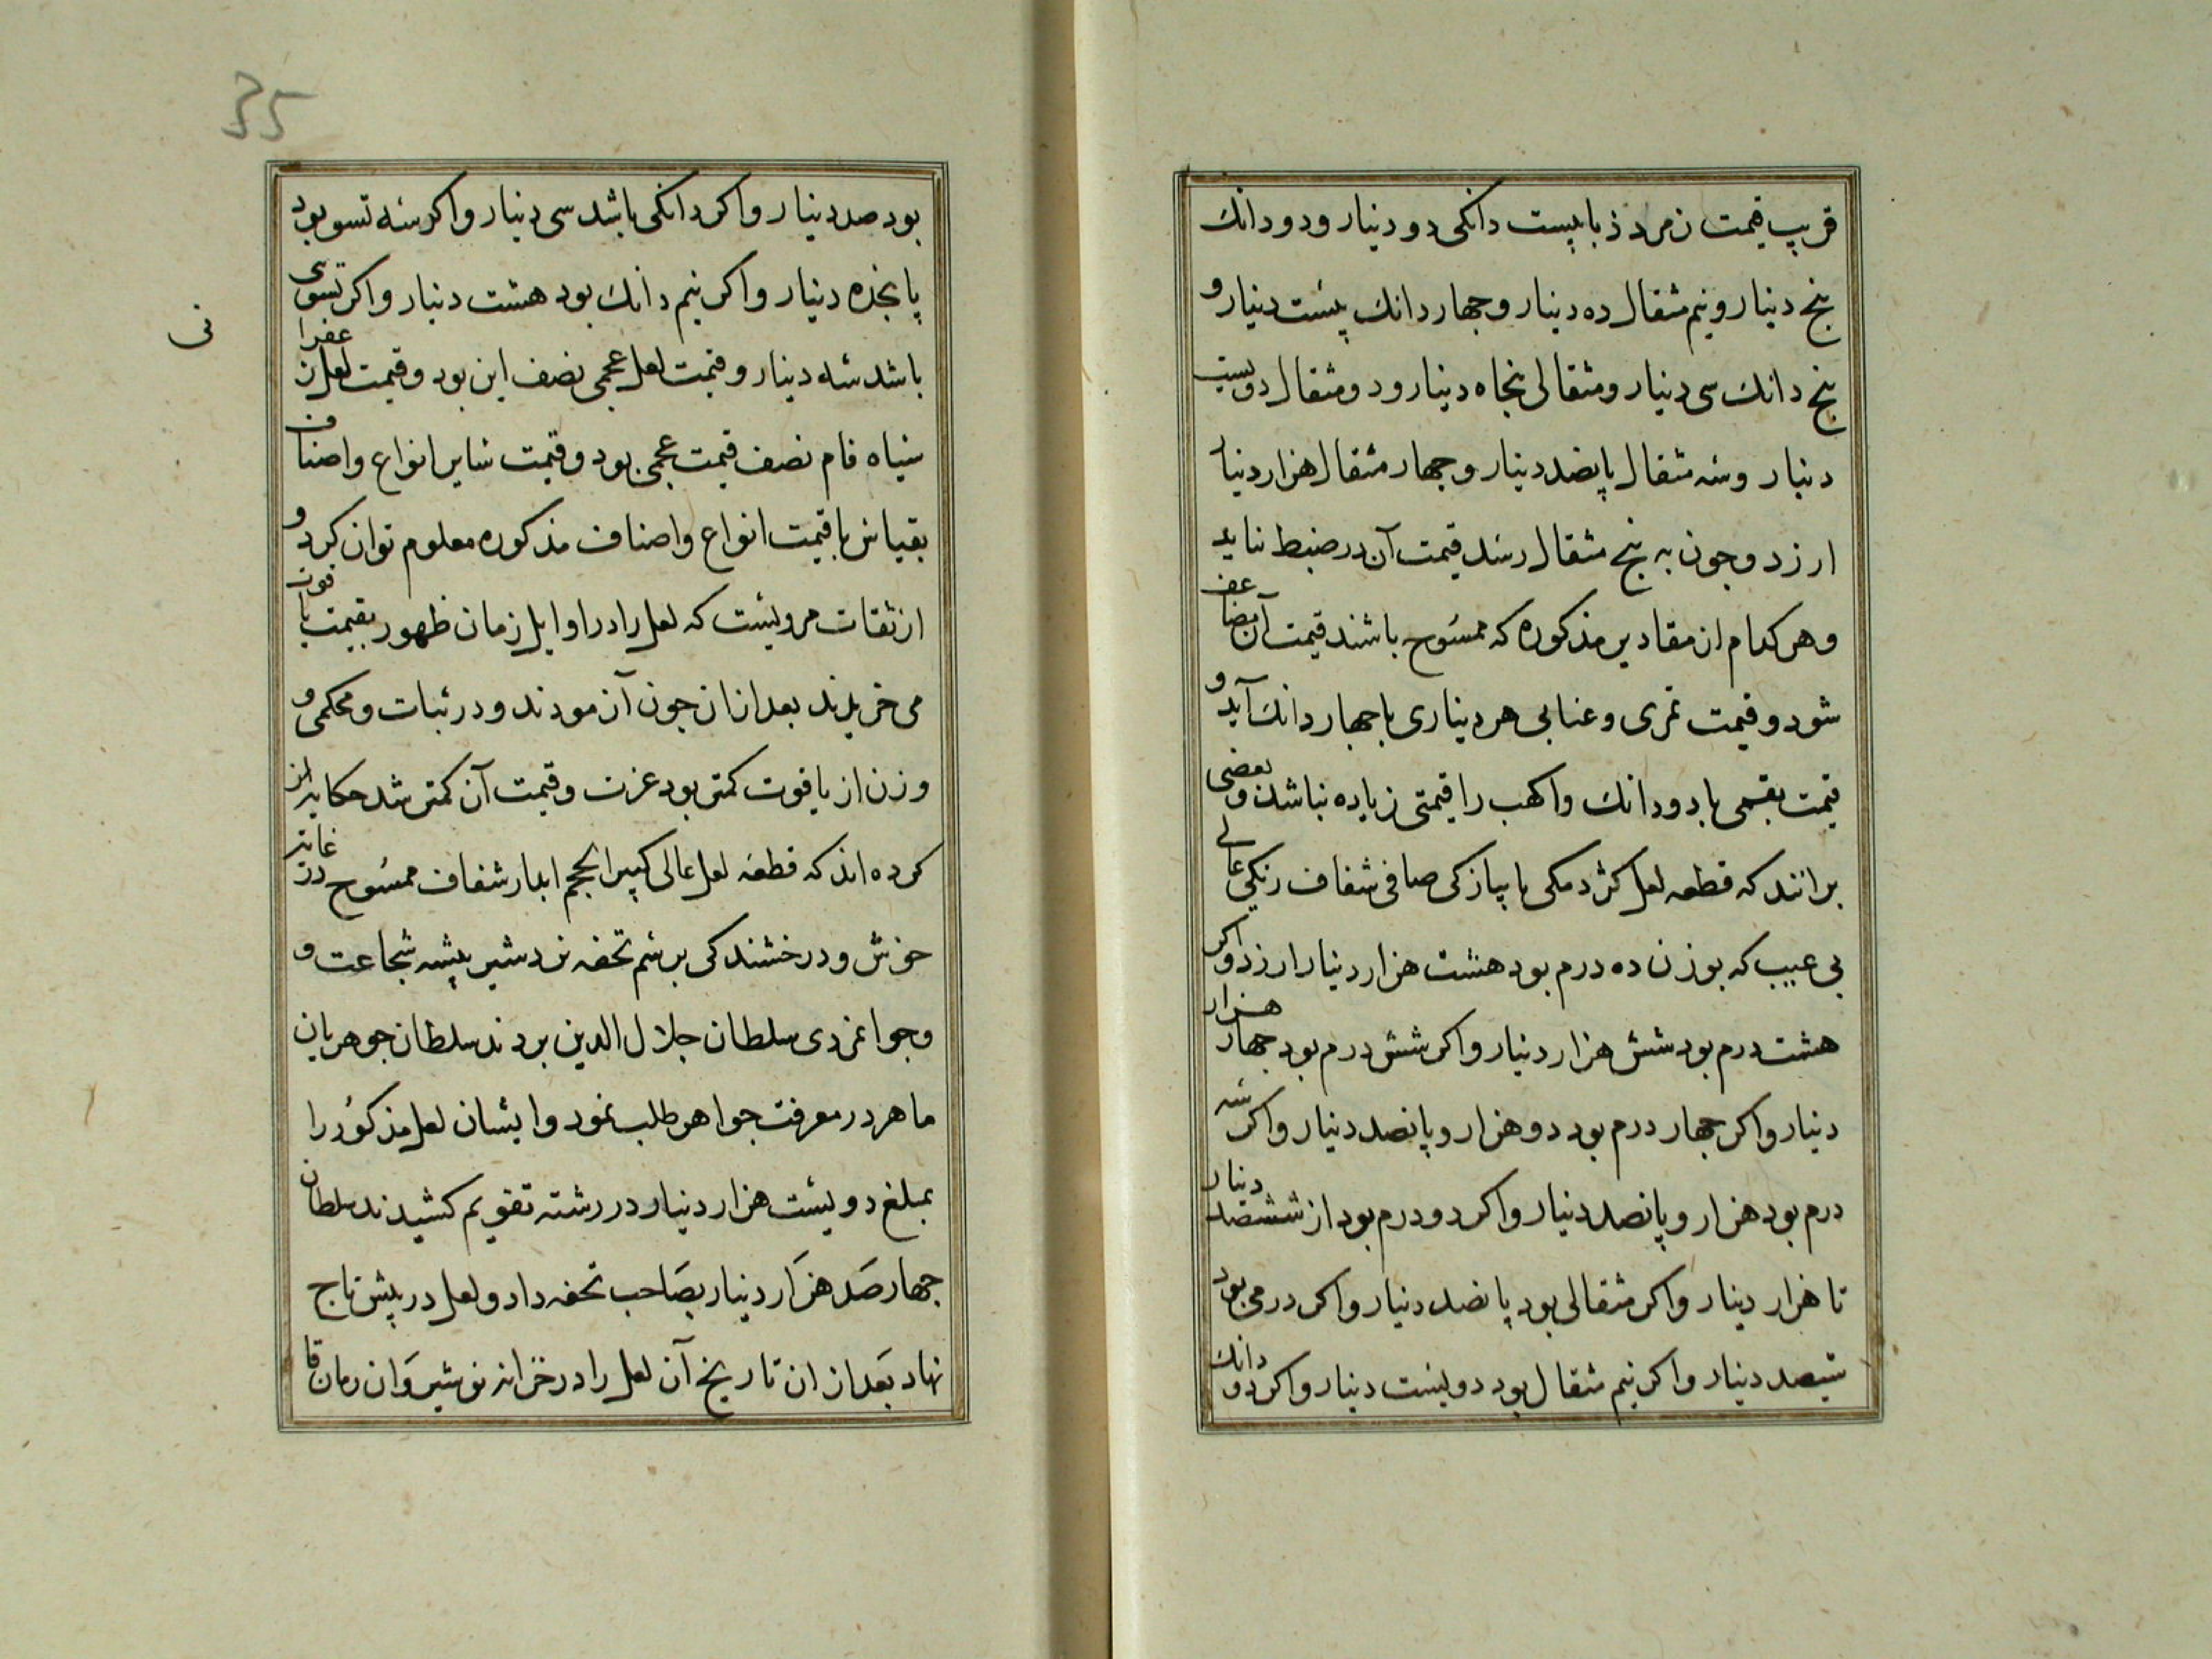 قریب قیمت زمرد ذبابیست دانکی دو دینار و دو دانک
پنج دینار و نیم مثقال ده دینار و جهار دانک بیست دینار و
پنج دانک سی دینار و مثقالی پنجاه دینار و دو مثقال دویست
دینار و سه مثقال پانصد دینار و جهار مثقال هزار دینار
ارزد و جون به پنج مثقال رسد قیمت آن در ضبط نیاید
و هر کدام از مقادیر مذکوره که ممسوح باشند قیمت آن مضاعف
شود و قیمت تمری و عنابی هر دیناری با جهار دانک آید و
قیمت بقمی با دو دانک و اکهب را قیمتی زیاده نباشد و بعضی
برانند که قطعه لعل کژدمکی یا پیازکی صافی شفاف رنکی عالی
بی عیب که بوزن ده درم بود هشت هزار دینار ارزد و اکر
هشت درم بود شش هزار دینار و اکر شش درم بود جهار هزار
دینار و اکر جهار درم بود دو هزار و پانصد دینار و اکر سه
درم بود هزار و پانصد دینار و اکر دو درم بود از ششصد دینار
تا هزار دینار و اکر مثقالی بود پانصد دینار و اکر درمی بود
سیصد دینار و اکر نیم مثقال بود دویست دینار و اکر دو دانک
35
بود صد دینار و اکر دانکی باشد سی دینار و اکر سه تسو بود
پانجده دینار و اکر نیم دانک بود هشت دینار و اکر تسوی
باشد سه دینار و قیمت لعل عجمی نصف این بود و قیمت لعل زعفرا
نی
سیاه فام نصف قیمت عجمی بود و قیمت سایر انواع و اصناف
بقیاس با قیمت انواع و اصناف مذکوره معلوم توان کرد و
از ثقات مرویست که لعل را در اوایل زمان ظهور بقیمت یاقوت
می خریدند بعد ازان جون آزمودند و در ثبات و محکمی و
وزن از یاقوت کمتر بود عزت و قیمت آن کمتر شد حکایه از
کرده اند که قطعه لعل عالی کبیر الحجم ابدار شفاف ممسوح در غایة
خوش و درخشندکی برسم تحفه نزد شیر بیشه شجاعت و
و جوانمردی سلطان جلال الدین بردند سلطان جوهریان
ماهر در معرفت جواهر طلب نمود و ایشان لعل مذکور را
بمبلغ دویست هزار دینار در رشته تقویم کشیدند سلطان
جهار صد هزار دینار بصاحب تحفه داد و لعل در پیش تاج
نهاد بعد ازان تاریخ آن لعل را در خزانه نوشیروان زمان قا